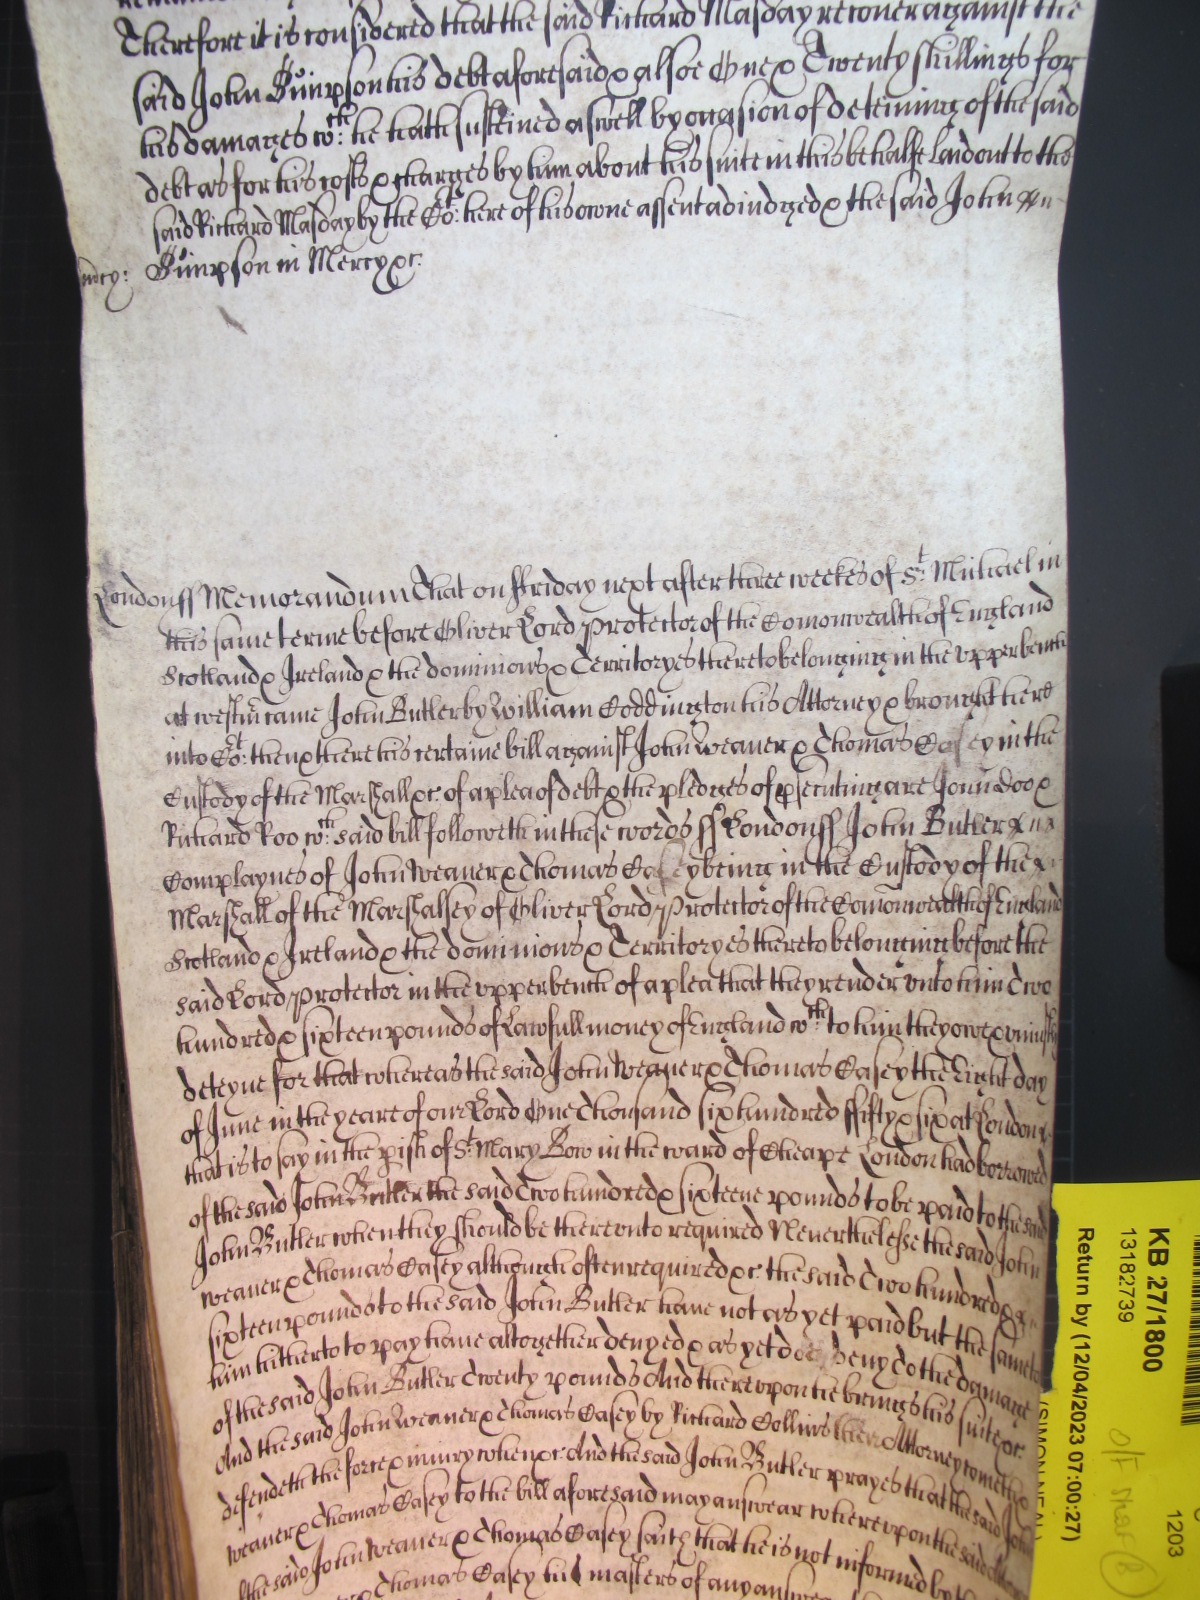 Therefore it is considered that the said Richard Masday recover against the
said John Gumpson his debt aforesaid & alsoe One & Twenty shillings for
his damages wch: he hath susteined aswell by occasion of deteining of the said
debt as for his costs & charges by him about his suite in this behalfe Laid out to the
said Richard Masday by the Cot: here of his owne assent adiudged & the said John
Gumpson in Mercy &c.
London ss Memorandum That on ffriday next after three weekes of St: Michael in
this same terme before Oliver Lord Protector of the Comonwealth of England
Scotland & Ireland & the dominions & Territoryes thereto belonging in the vpper bench
at westm came John Butler by William Coddington his Attorney & brought here
into Cot: then & there his certaine bill against John Weaver & Thomas Casey in the
Custody of the Marshall &c. of a plea of debt & the pledges of psecuting are John Doo &
Richard Roo wch: said bill followeth in these words ss London ss John Butler
Complaynes of John Weaver & Thomas Casey being in the Custody of the
Marshall of the Marshalsey of Oliver Lord Protector of the Comonwealth of England
Scotland & Ireland & the dominions & Territoryes thereto belonging before the
said Lord Protector in the vpper bench of a plea that they render vnto him Two
hundred & sixteen pounds of Lawfull money of England wch: to him they owe & vniustly
deteyne for that whereas the said John Weaver & Thomas Casey the Eight day
of June in the yeare of our Lord One Thousand six hundred ffifty & six at London
that is to say in the pish of St: Mary Bow in the ward of Cheape London had borrowed
of the said John Butler the said Two hundred & sixteene pounds to be paid to the said
John Butler when they should be therevnto required Neverthelesse the said John
Weaver & Thomas Casey although often required &c. the said Two hundred &
sixteen pounds to the said John Butler have not as yet paid but the same to
him hitherto to pay have altogether denyed & as yet doe deny To the damage
of the said John Butler Twenty pounds And therevpon he brings his suite &c.
And the said John Weaver & Thomas Casey by Richard Collins their Attorney cometh &
defendeth the force & iniury when &c. And the said John Butler prayes that the said John
Weaver & Thomas Casey to the bill aforesaid may answear wherevpon the said Attorney
of the said John Weaver & Thomas Casey saith that he is not informed by the
& Thomas Casey his masters of any answer
KB 27/1800
13182739
Return by (12/04/2023 07:00:27)
(SIMON NEAL)
1203